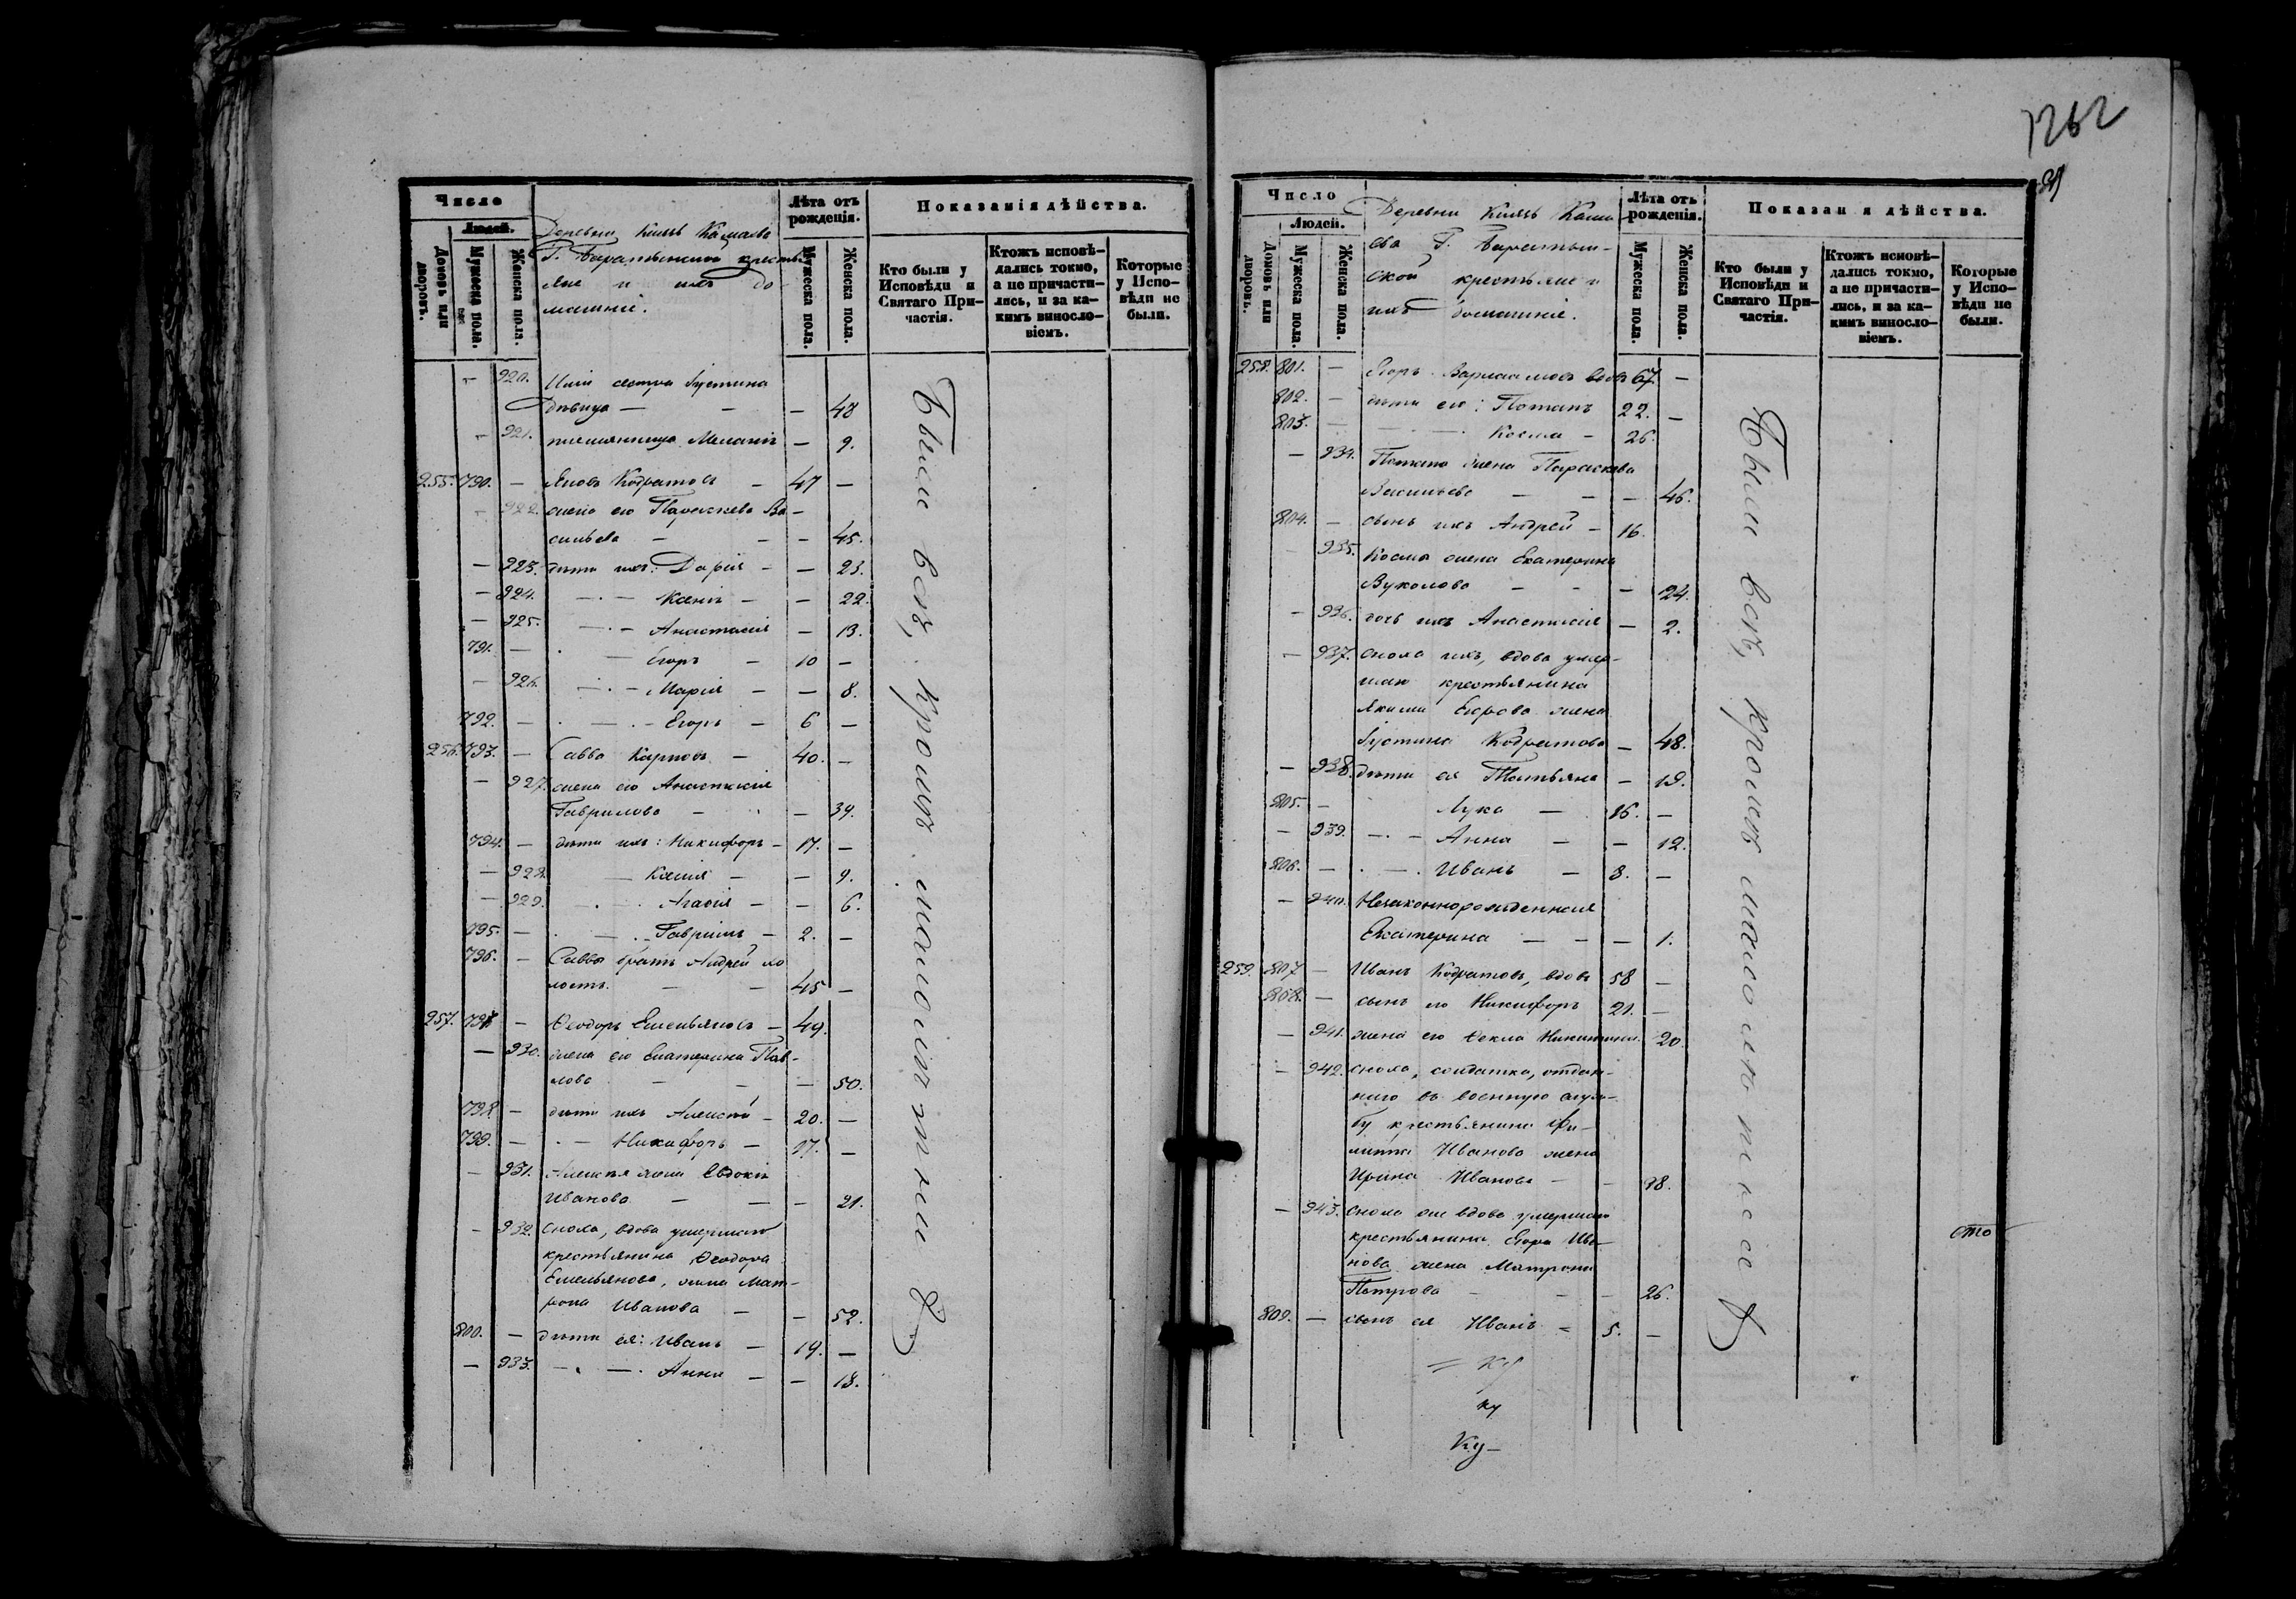 1262
Число
Людей.
Домовъ или дворовъ.
Мужеска пола.
Женска пола.
Деревни Князь Камаева
Г. Баратынской кресть-
яне и ихъ до-
машніе.
Лѣта отъ рожденія.
Мужеска пола.
Женска пола.
Показанія дѣйства.
Кто были у Исповѣди и Святаго При-частія.
Ктожъ исповѣ-дались токмо, а не причасти-лись, и за ка-кимъ винословіемъ.
Которые у Испо-вѣди не были.
— 920. сестра Іустина
дѣвица — — — 48
— 921. племянница Меланія — 9.
255. 790. — Яковъ Кодратовъ — 47 —
— 922. жена его Параскева Ва-
сильева — — — 45.
— 923. дѣти ихъ: Дарія — — 23.
— 924. — Ксенія — — 22.
— 925. — Анастасія — 13.
791. — — Егоръ — 10 —
— 926. — Марія — — 8.
792. — — Егоръ — 6 —
256. 793. — Савва Карповъ — 40. —
— 927. жена его Анастасія
Гаврилова — — 34.
794. — дѣти ихъ: Никифоръ — 17. —
— 928. — Ксенія — — 9.
— 929. — Агаѳія — — 6.
795. — — Гавріилъ — 2. —
796. — Саввы братъ Андрей хо
лостъ. — — 45 —
257. 797. — Ѳеодоръ Емельяновъ — 49.
— 930. жена его Екатерина Пав-
лова — — — 50.
798. — дѣти ихъ Алексѣй — 20. —
799. — — Никифоръ — 17. —
— 931. Алексѣя жена Евдокія
Иванова — — — 21.
— 932. Сноха, вдова умершаго
крестьянина Ѳеодора
Емельянова, жена Мат-
рона Иванова — — 52.
800. — дѣти ея: Иванъ — 19. —
— 933. — Анна — — 13.
Были всѣ, кромѣ малолѣтних
Число
Людей.
Домовъ или дворовъ.
Мужеска пола.
Женска пола.
Деревни Князь Кама
ева Г. Баратын-
ской крестьяне и
ихъ домашніе.
Лѣта отъ рожденія.
Мужеска пола.
Женска пола.
Показан я дѣйства.
Кто были у Исповѣди и Святаго При-частія.
Ктожъ исповѣ-дались токмо, а не причасти-лись, и за ка-кимъ винословіемъ.
Которые у Испо-вѣди не были.
258. 801. — Егоръ Варлаамовъ вдов 67 —
802. — дѣти его: Потапъ 22. —
803. — — Косма — 26.
— 934. Потапа жена Параскева
Васильева — — — 46.
804. — сынъ ихъ Андрей — 16.
935. Космы жена Екатерина
Вуколова — — — 24.
— 936. дочь ихъ Анастасія — 2.
— 937. Сноха ихъ, вдова умер-
шаго крестьянина
Якима Егорова жена
Іустина Кодратова — 48.
— 938. дѣти ея Татьяна — 19.
805. — Лука — 16. —
— 939. — Анна — — 12.
806. — — Иванъ — 8. —
— 940. Незаконнорожденная
Екатерина — — — 1.
259. 807 — Иванъ Кодратовъ, вдовъ 58 —
808. — сынъ его Никифоръ 21. —
— 941. жена его Ѳекла Никитина 20.
— 942. сноха, солдатка, отдан-
наго въ военную служ-
бу крестьянина Фи-
липпа Иванова жена
Ирина Иванова — — 28.
— 943. сноха же вдова умершаго
крестьянина Егора Ива-
нова жена Матрона
Петрова — — — 26.
809. — сынъ ея Иванъ — 5. —
Ку
Были всѣ, кромѣ